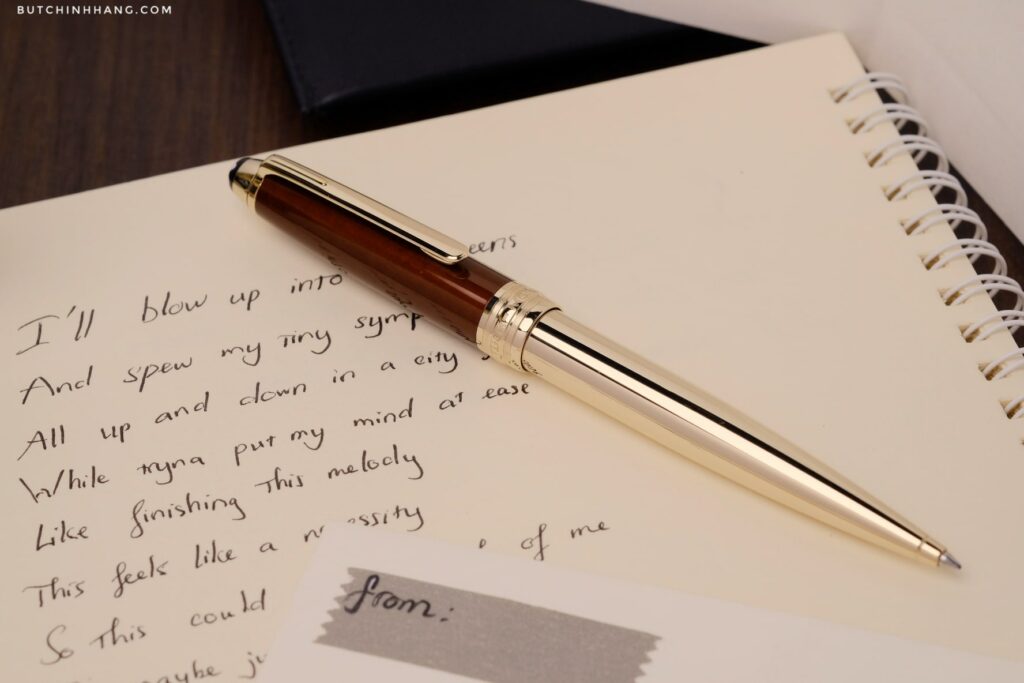 BUTCHINHHANG.COM
I'll blow up into eens
And spew my tiny symp
All up and down in a city
While tryna put my mind at ease
Like finishing this melody
This feels like a n essity
So this could of me
maybe ju
from: